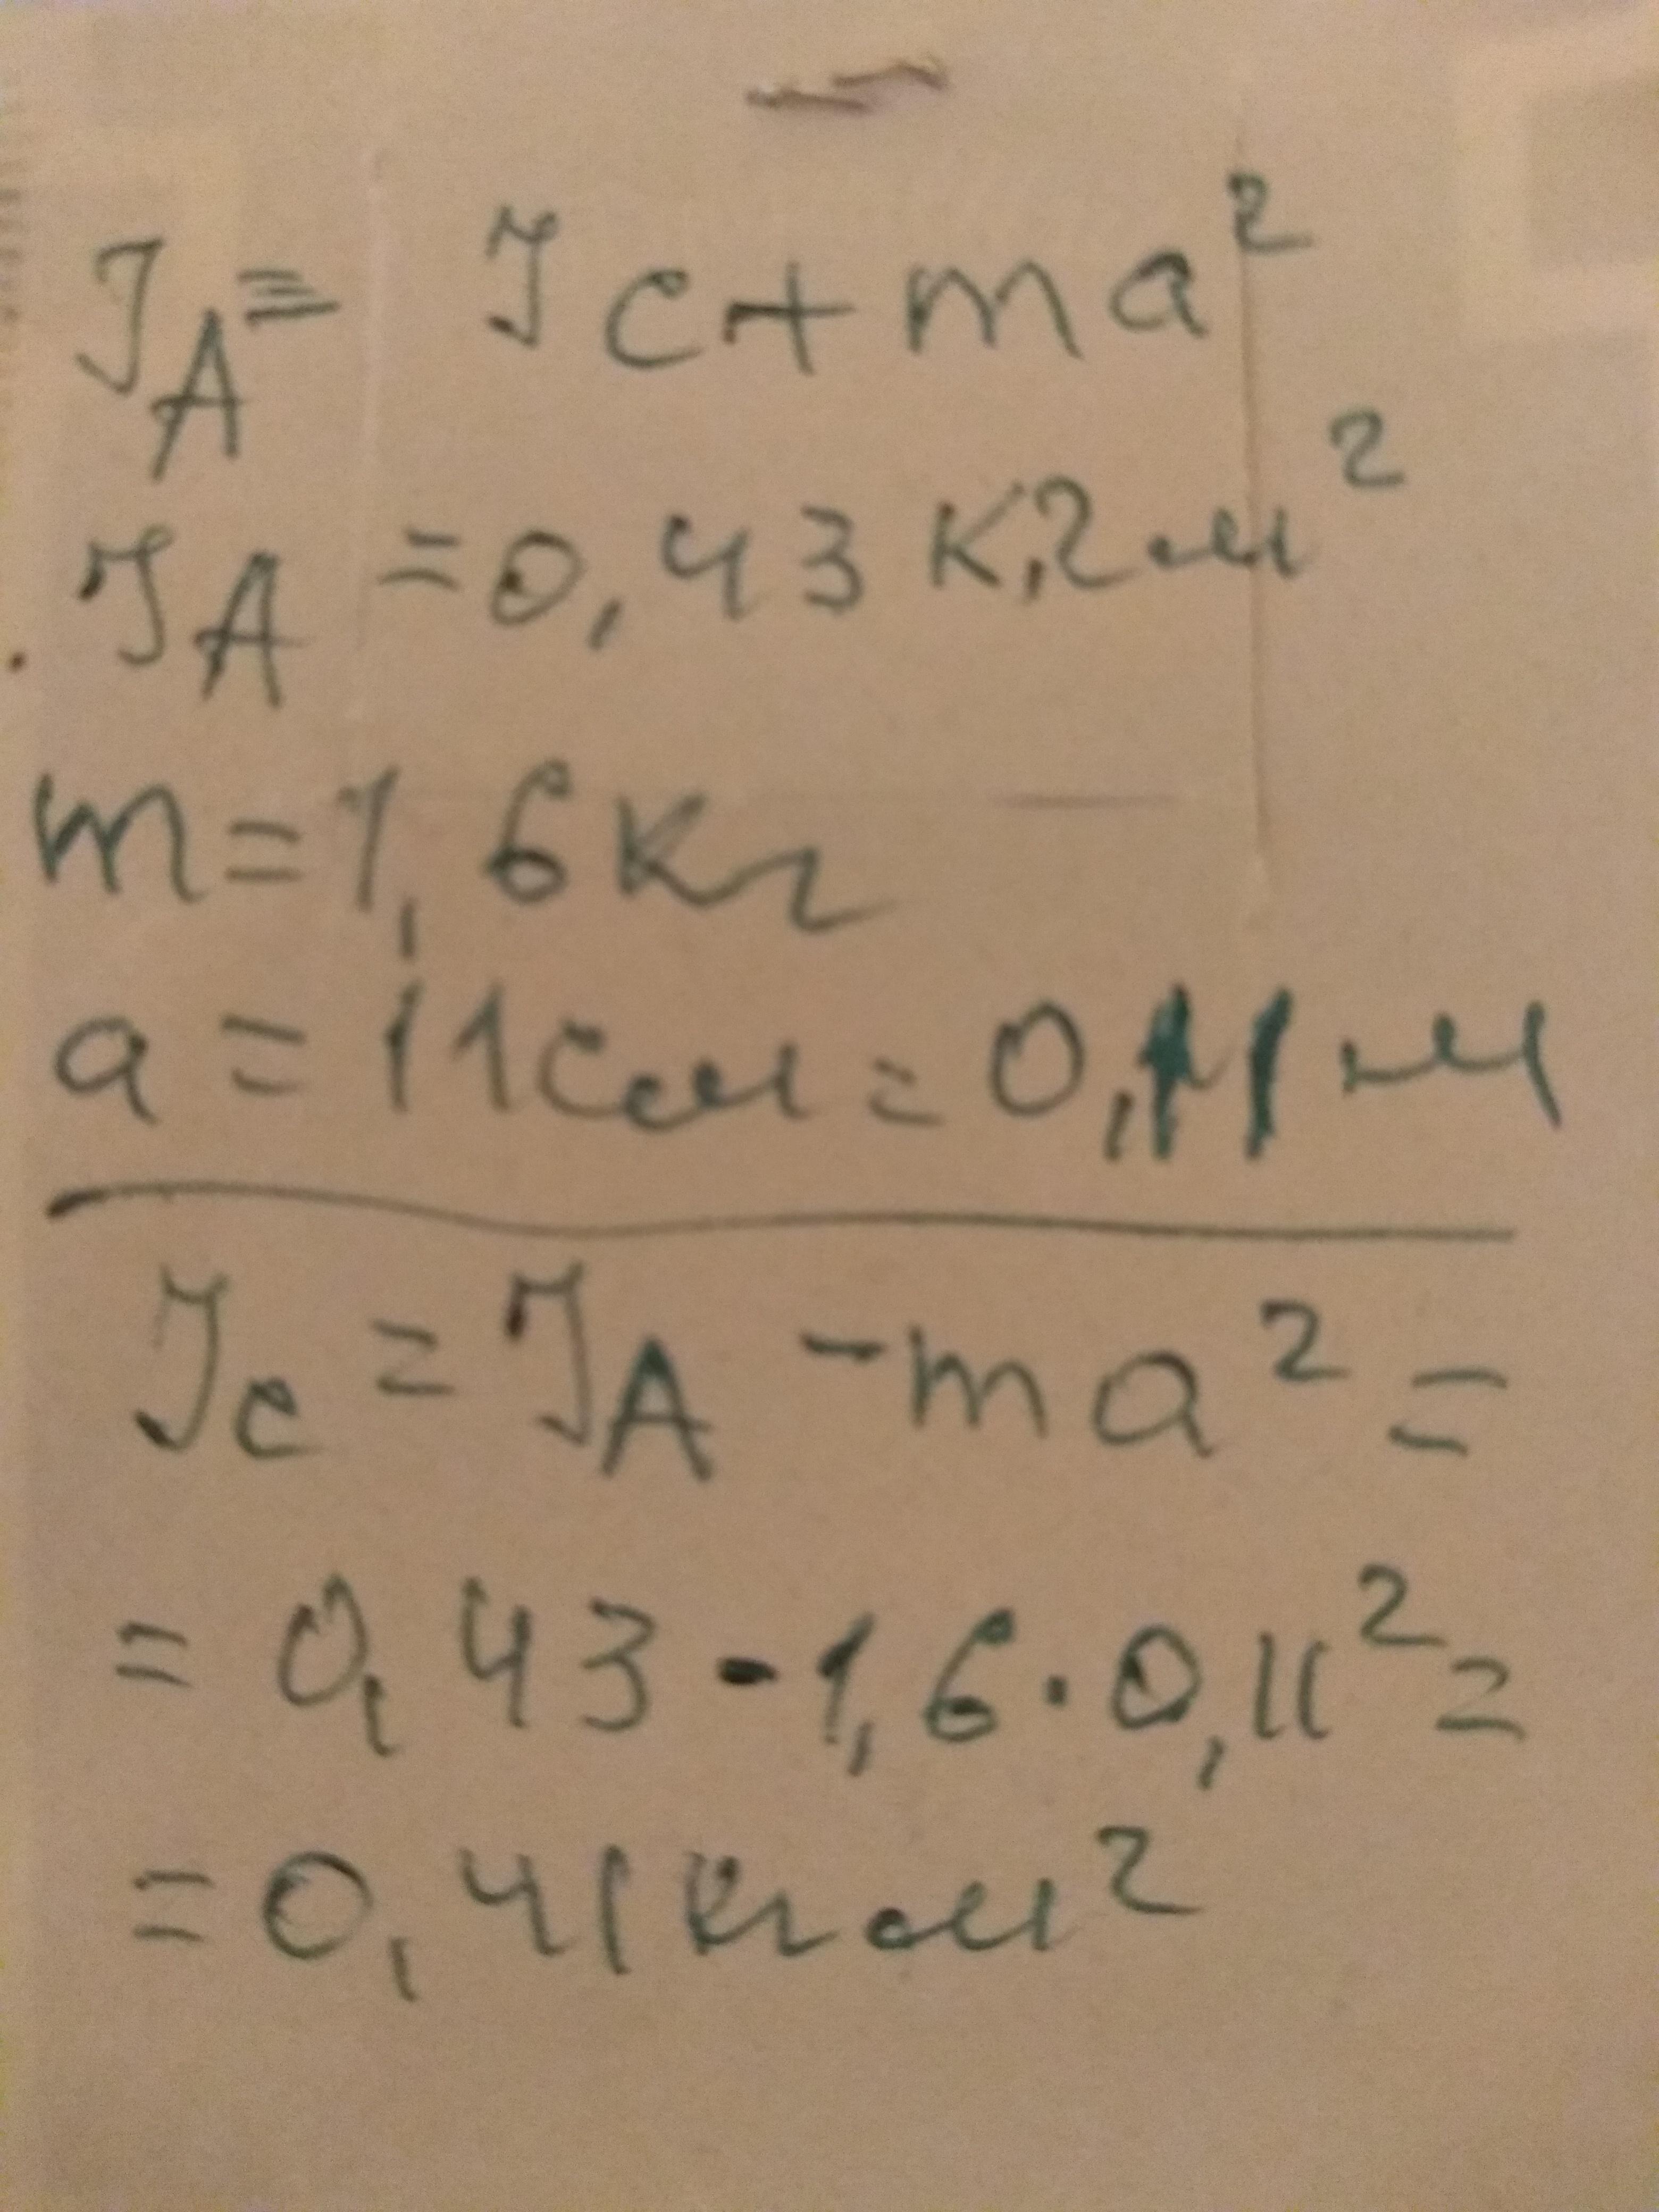 J_A = Jc + ma²
J_A = 0,43 кг м²
m = 1,6 кг
a = 11 см = 0,11 м
Jc = J_A - ma² =
= 0,43 - 1,6 · 0,11² =
= 0,41 кг м²